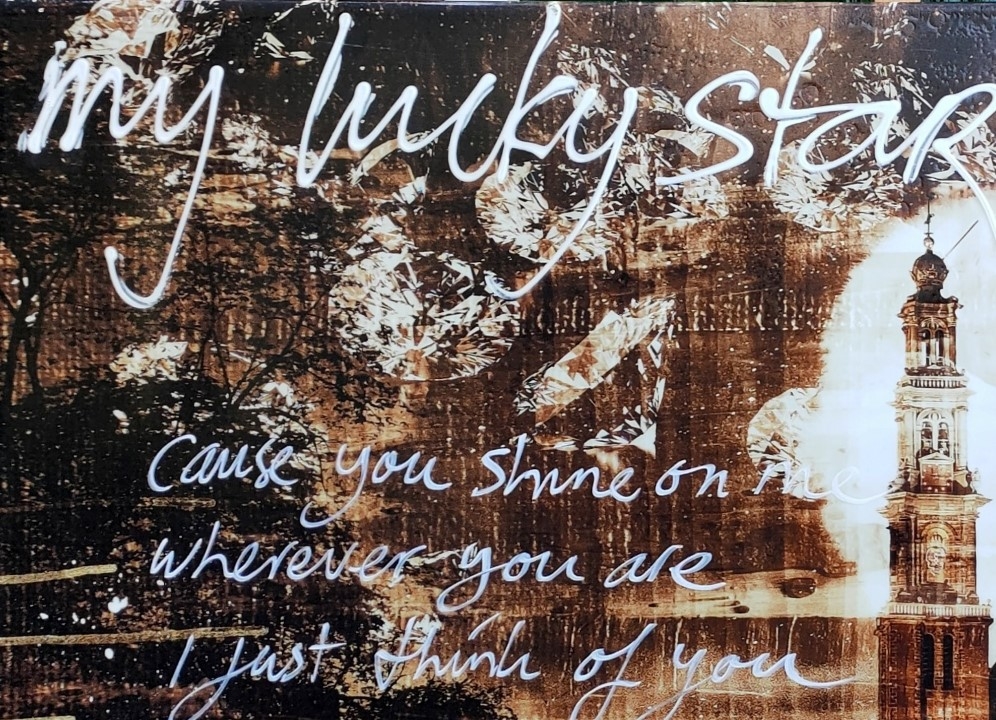 my lucky star
Cause you shine on me
wherever you are
I just think of you